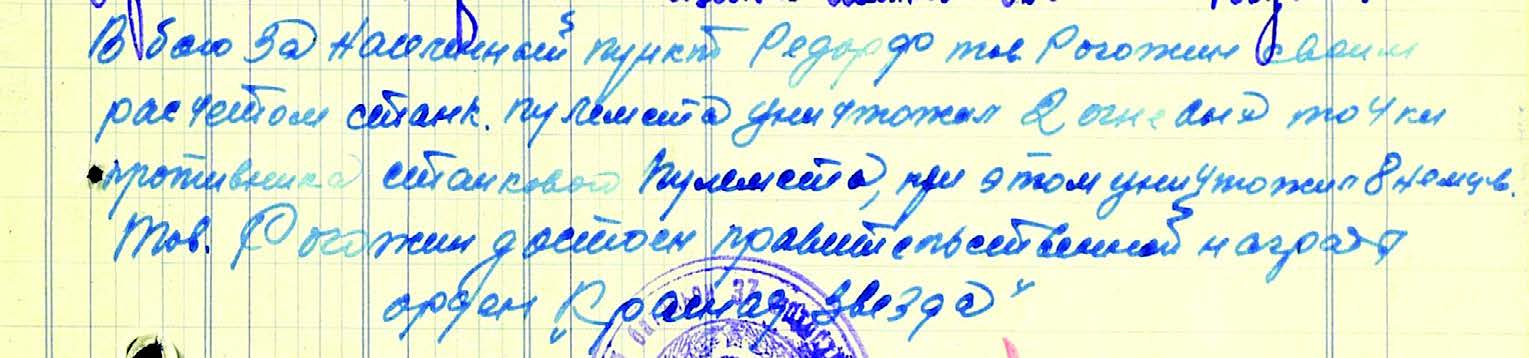 В бою за населенный пункт Редорф тов. Рогожин своим
расчетом станк. пулемета уничтожил 2 огневые точки
противника станковой пулемета, при этом уничтожил 8 немцев.
Тов. Рогожин достоен правительственной награды
орден "Красная Звезда"
37